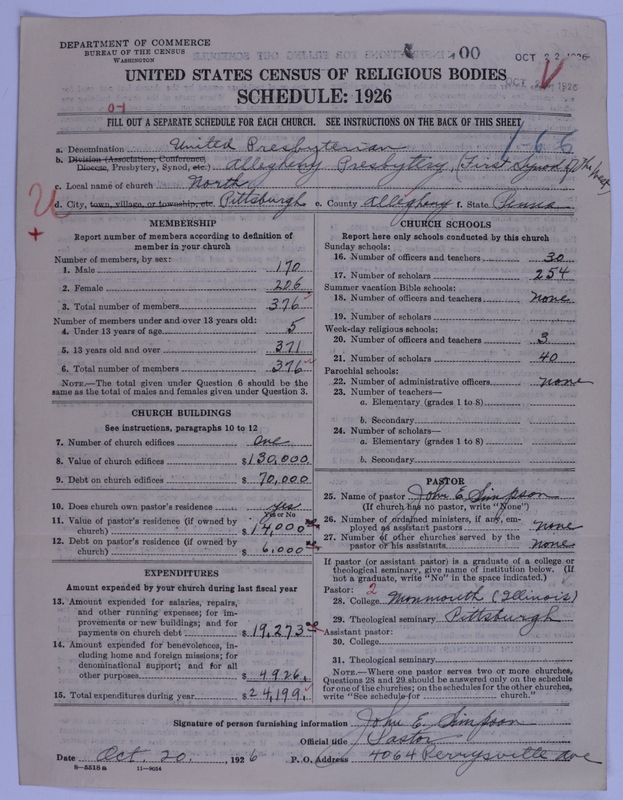 DEPARTMENT OF COMMERCE
BUREAU OF THE CENSUS
WASHINGTON
00
OCT 22 1926
OCT 1926
UNITED STATES CENSUS OF RELIGIOUS BODIES
SCHEDULE: 1926
0-1
FILL OUT A SEPARATE SCHEDULE FOR EACH CHURCH. SEE INSTRUCTIONS ON THE BACK OF THIS SHEET
1-66
a. Denomination United Presbyterian
b. Division (Association, Conference,
Diocese, Presbytery, Synod, etc.) Allegheny Presbytery, (First Synod of the West
c. Local name of church North
d. City, town, village, or township, etc. Pittsburgh e. County Allegheny f. State Penna
MEMBERSHIP
Report number of members according to definition of
member in your church
Number of members, by sex:
1. Male 170
2. Female 206
3. Total number of members 376
Number of members under and over 13 years old:
4. Under 13 years of age 5
5. 13 years old and over 371
6. Total number of members 376
NOTE.—The total given under Question 6 should be the
same as the total of males and females given under Question 3.
CHURCH BUILDINGS
See instructions, paragraphs 10 to 12
7. Number of church edifices one
8. Value of church edifices $130,000
9. Debt on church edifices $70,000
10. Does church own pastor's residence yes
Yes or No
11. Value of pastor's residence (if owned by
church) $14,000
12. Debt on pastor's residence (if owned by
church) $6,000
EXPENDITURES
Amount expended by your church during last fiscal year
13. Amount expended for salaries, repairs,
and other running expenses; for im-
provements or new buildings; and for
payments on church debt $19,273
14. Amount expended for benevolences, in-
cluding home and foreign missions; for
denominational support; and for all
other purposes $4926.
15. Total expenditures during year $24,199.
CHURCH SCHOOLS
Report here only schools conducted by this church
Sunday schools:
16. Number of officers and teachers 30
17. Number of scholars 254
Summer vacation Bible schools:
18. Number of officers and teachers none
19. Number of scholars
Week-day religious schools:
20. Number of officers and teachers 3
21. Number of scholars 40
Parochial schools:
22. Number of administrative officers none
23. Number of teachers—
a. Elementary (grades 1 to 8)
b. Secondary
24. Number of scholars—
a. Elementary (grades 1 to 8)
b. Secondary
PASTOR
25. Name of pastor John E. Simpson
(If church has no pastor, write "None")
26. Number of ordained ministers, if any, em-
ployed as assistant pastors none
27. Number of other churches served by the
pastor or his assistants none
If pastor (or assistant pastor) is a graduate of a college or
theological seminary, give name of institution below. (If
not a graduate, write "No" in the space indicated.)
Pastor: 2
28. College Monmouth (Illinois)
29. Theological seminary Pittsburgh
Assistant pastor:
30. College
31. Theological seminary
NOTE.—Where one pastor serves two or more churches,
Questions 28 and 29 should be answered only on the schedule
for one of the churches; on the schedules for the other churches,
write "See schedule for church."
Signature of person furnishing information John E. Simpson
Official title Pastor
Date Oct. 20, 1926 P. O. Address 4064 Perrysville Ave
8-5518a 11-9054